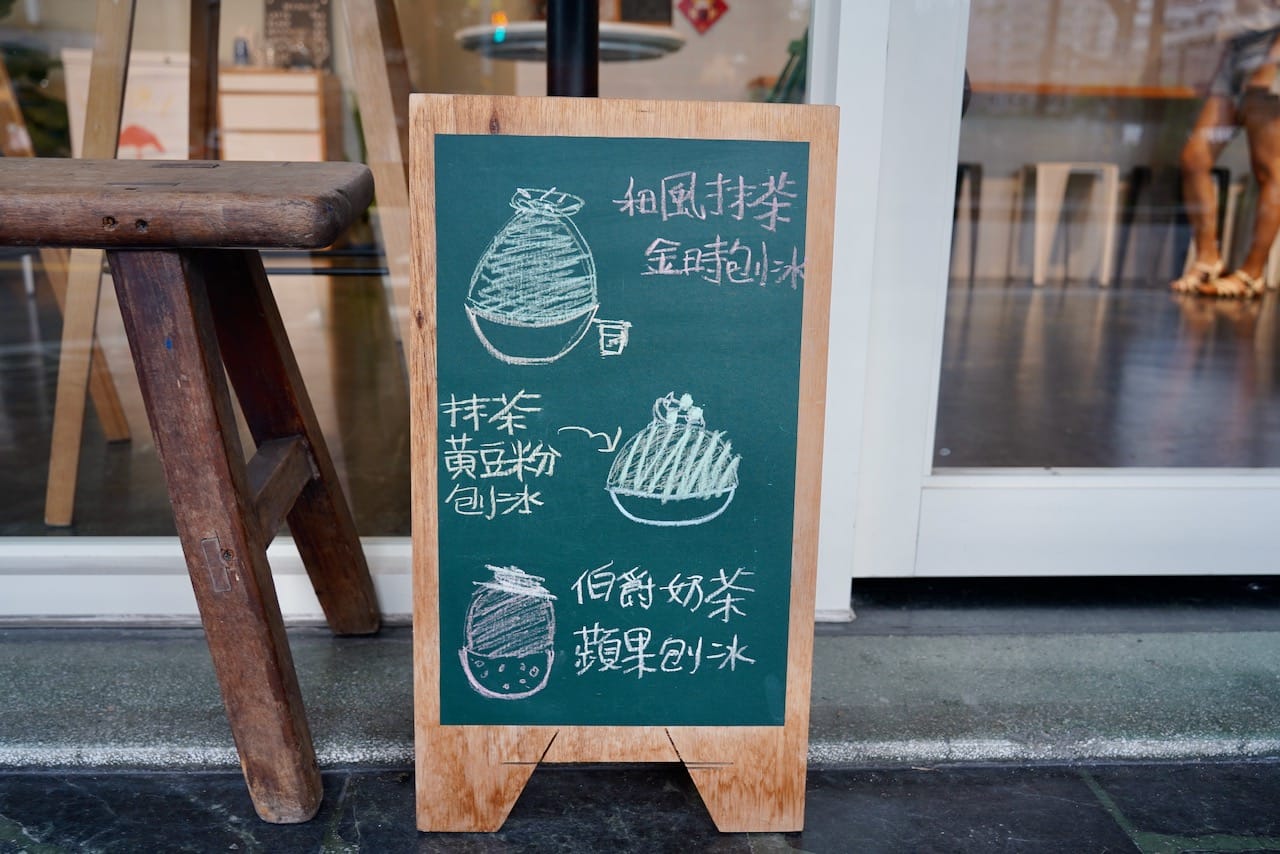 和風抹茶
金時刨冰
抹茶
黃豆粉
刨冰
伯爵奶茶
蘋果刨冰